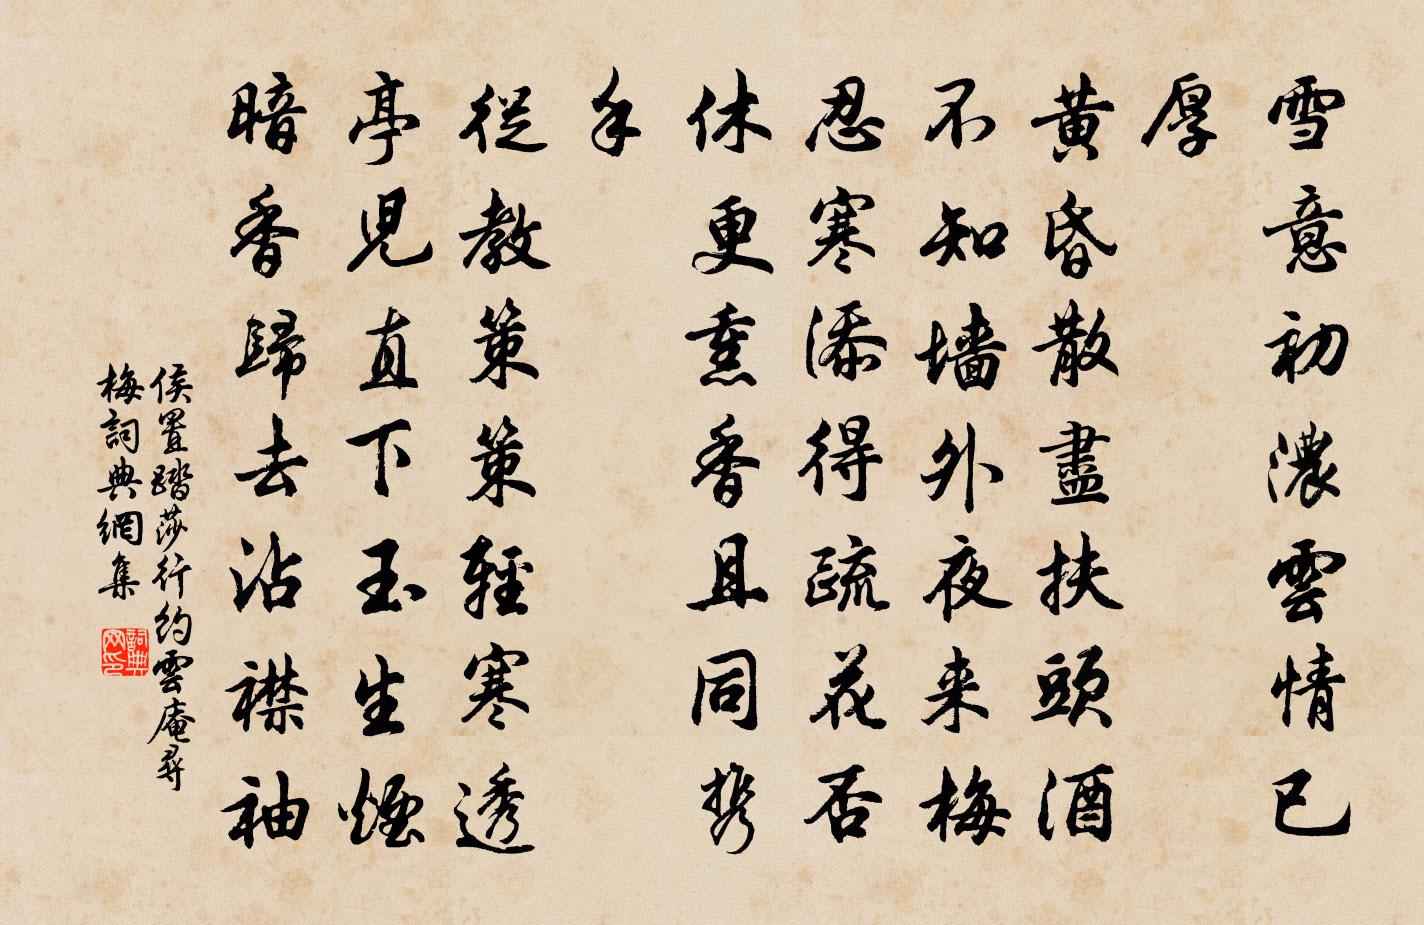 雪意初濃雲情已
厚
黄昏散盡扶頭酒
不知墻外夜来梅
忍寒添得疏花否
休更熏香且同携
手
從教策策輕寒透
亭兒直下玉生煙
暗香歸去沾襟袖
侯置踏莎行約雲庵尋
梅詞典網集
詞典
网印